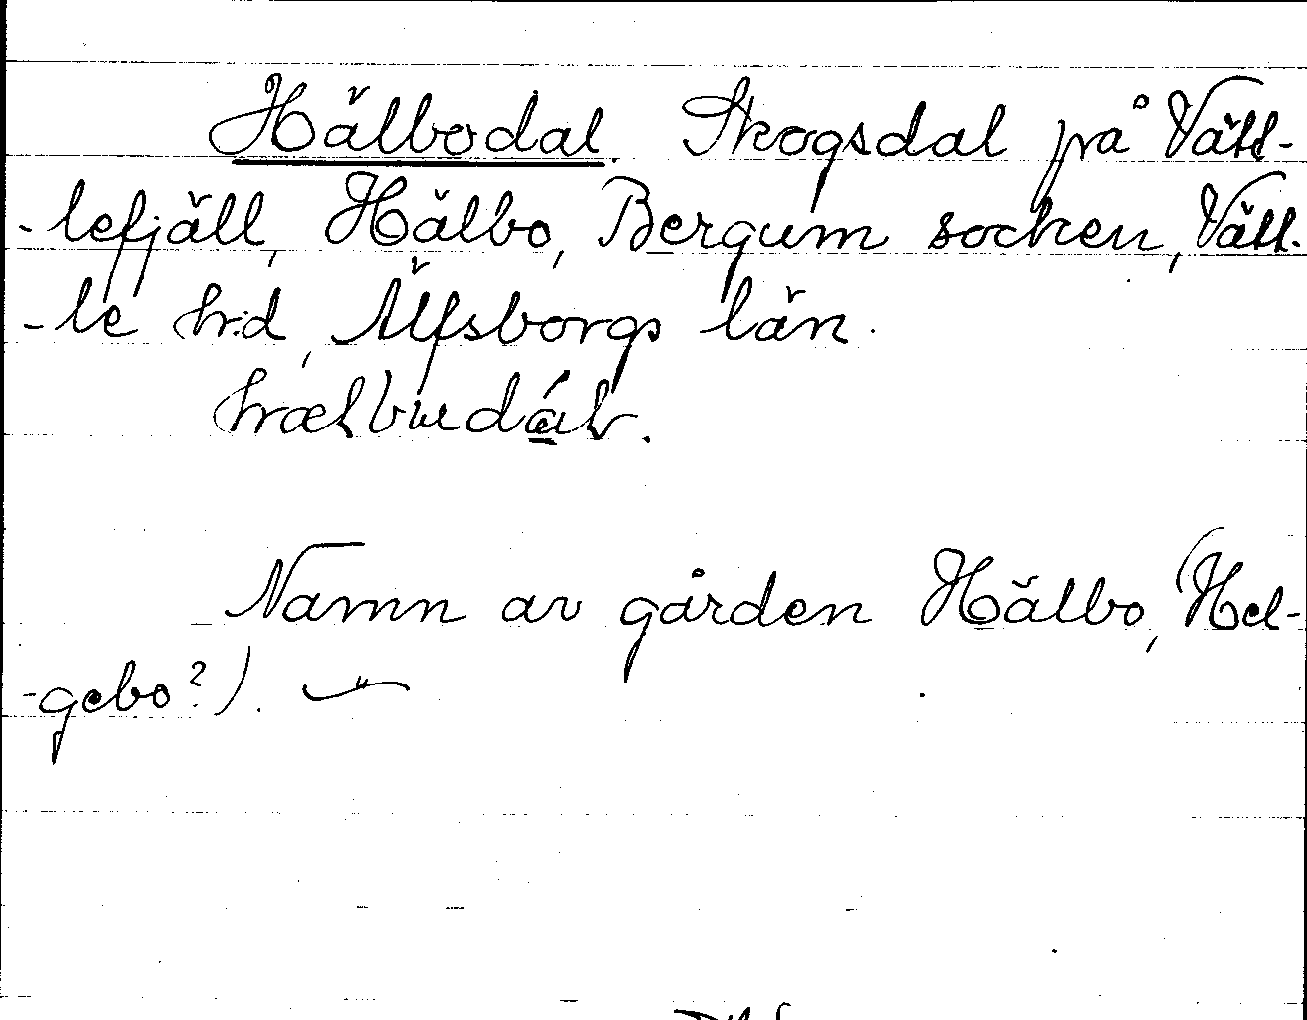 Hälbodal. Skogsdal på Vätt-
-lefjäll, Hälbo, Bergum socken, Vätt-
-le hd, Älfsborgs län.
Namn av gården Hälbo, (Hel-
-gebo?).